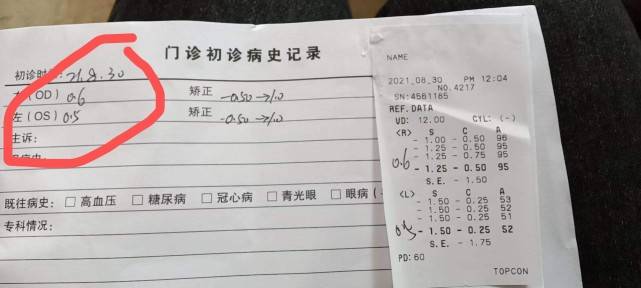 门诊初诊病史记录
初诊时间: 21.8.30
右(OD) 0.6 矫正 -0.50→1.0
左(OS) 0.5 矫正 -0.50→1.0
主诉:
既往病史: □ 高血压 □ 糖尿病 □ 冠心病 □ 青光眼 □ 眼病(
专科情况:
NAME
2021_08_30 PM 12:04
NO.4217
SN:4561165
REF.DATA
VD: 12.00 CYL: (-)
<R> S C A
- 1.00 - 0.50 96
- 1.25 - 0.50 95
- 1.25 - 0.75 95
0.6 - 1.25 - 0.50 95
S.E. - 1.50
<L> S C A
- 1.50 - 0.25 53
- 1.50 - 0.25 52
- 1.50 - 0.25 51
0.5 - 1.50 - 0.25 52
S.E. - 1.75
PD: 60
TOPCON